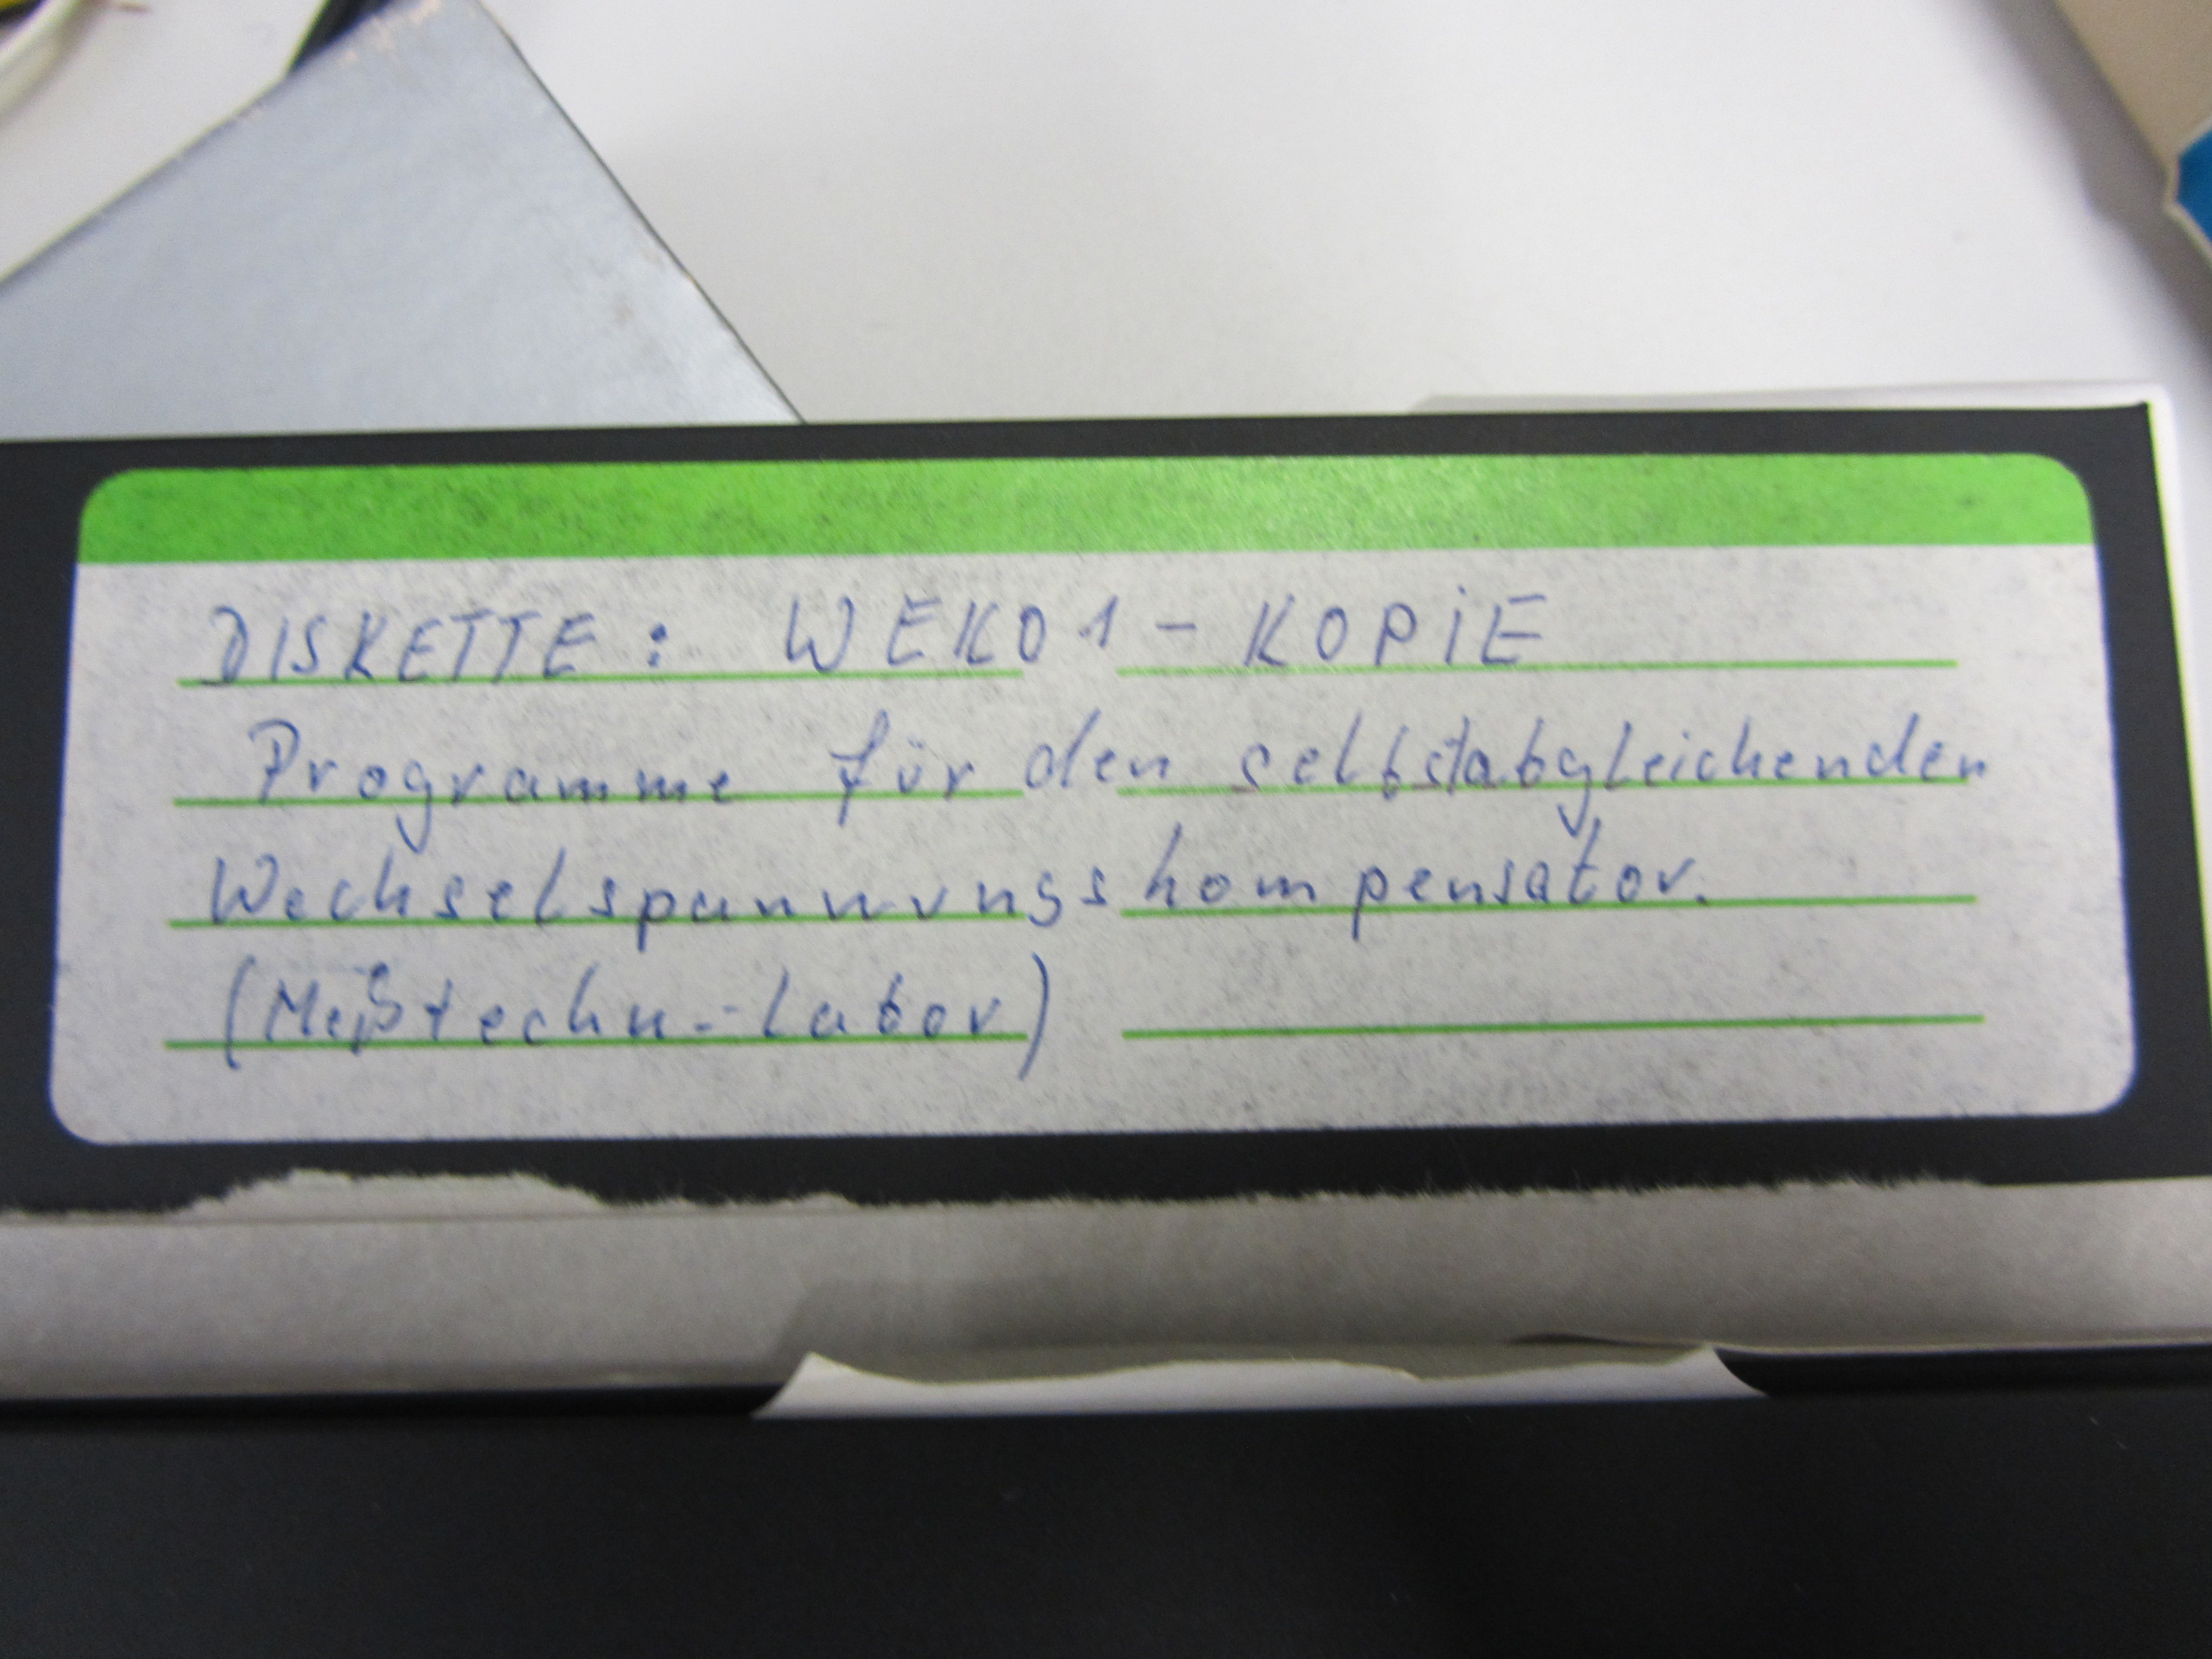 DISKETTE: WEKO1-KOPIE
Programme für den selbstabgleichenden
Wechselspannungskompensator.
(Meßtechn.-Labor)